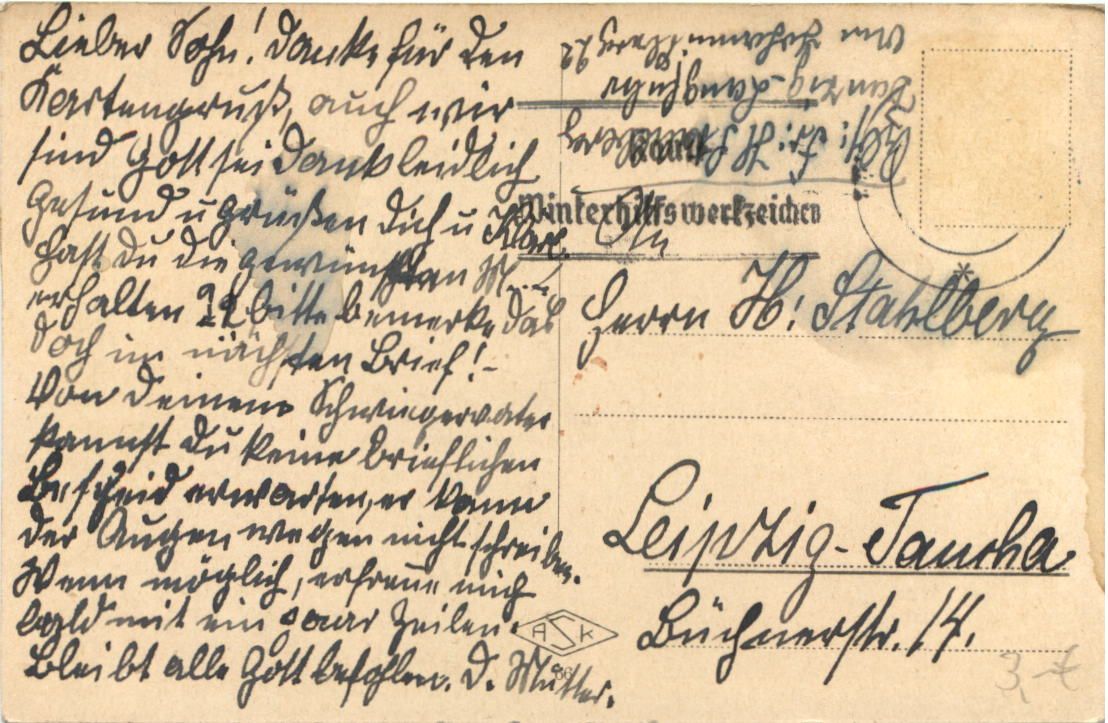 Lieber Sohn! Danke für den
Kartengruß, auch wir
sind Gott sei Dank leidlich
gesund u grüßen Dich u
Hast du die gewünschten
erhalten ?? bitte bemerke das
doch im nächsten Brief! -
Von Deinem Schwiegervater
kannst du keine brieflichen
Bescheid erwarten, er kann
der Augen wegen nicht schreiben.
Wenn möglich, erfreue mich
bald mit ein paar Zeilen.
Bleibt alle Gott befohlen. D. Mutter.
Abs: Fr: H Stahlberg
Danzig-Langfuhr
Winterhilfswerkzeichen
An
Herrn H: Stahlberg
Leipzig-Taucha
Büchnerstr. 14.
ASK
3,-